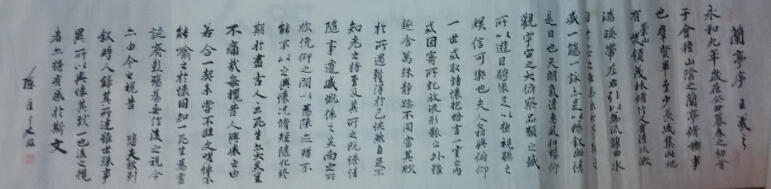 蘭亭序 王羲之
永和九年歲在癸丑暮春之初會
于會稽山陰之蘭亭脩禊事
也羣賢畢至少長咸集此地
有崇山峻領茂林脩竹又有清流激
湍暎帶左右引以為流觴曲水
列坐其次雖無絲竹管弦之
盛一觴一詠亦足以暢敘幽情
是日也天朗氣清惠風和暢仰
觀宇宙之大俯察品類之盛
所以遊目騁懷足以極視聽之
娛信可樂也夫人之相與俯仰
一世或取諸懷抱悟言一室之內
或因寄所託放浪形骸之外雖
趣舍萬殊靜躁不同當其欣
於所遇暫得於己快然自足不
知老之將至及其所之既惓情
隨事遷感慨係之矣向之所
欣俛仰之間以為陳迹猶不
能不以之興懷況脩短隨化終
期於盡古人云死生亦大矣豈
不痛哉每攬昔人興感之由
若合一契未嘗不臨文嗟悼不
能喻之於懷固知一死生為虛
誕齊彭殤為妄作後之視今
亦由今之視昔 悲夫故列
敘時人錄其所述雖世殊事
異所以興懷其致一也後之攬
者亦將有感於斯文